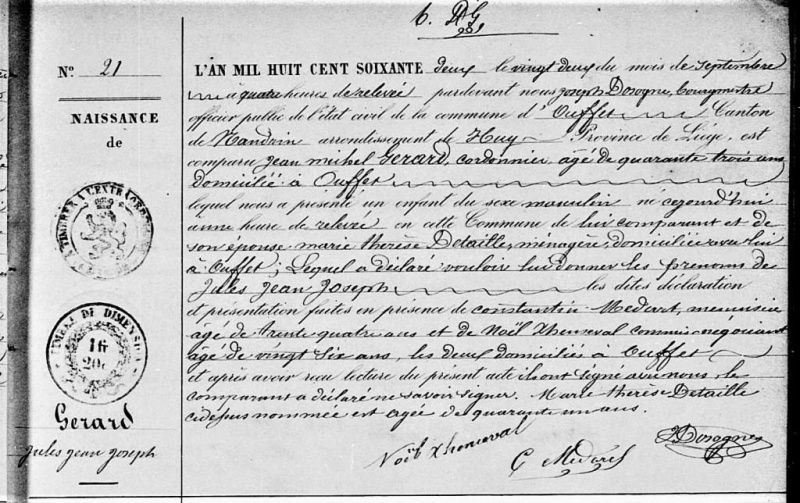 6. DG
N.o 21
NAISSANCE
de
TIMBRE A L'EXTRAORDINAIRE
TIMBRE DE DIMENSION
16
20c
Gerard
Jules Jean Joseph
L'AN MIL HUIT CENT SOIXANTE deux le vingt deux du mois de Septembre
à quatre heures de relevé pardevant nous Joseph Dosogne, bourgmestre
officier public de l'état civil de la commune d'Ouffet Canton
de Nandrin arrondissement de Huy Province de Liége, est
comparu Jean michel Gerard, cordonnier, âgé de quarante trois ans
domicilié à Ouffet
lequel nous a présenté un enfant du sexe masculin né cejourd'hui
à une heure de relevée en cette Commune de lui comparant et de
son épouse marie thérèse Detaille, ménagère, domiciliée avec lui
à Ouffet; Lequel a déclaré vouloir lui donner les prénoms de
Jules Jean Joseph les dites déclaration
et présentation faites en présence de Constantin Medart, menuisier
âgé de trente quatre ans et de Noël Xheneval commis negociant
âgé de vingt six ans, les deux domiciliés à Ouffet
et après avoir reçu lecture du présent acte ils ont signé avec nous, le
comparant a déclaré ne savoir signer. Marie thérèse Detaille
cidessus nommée est agée de quarante un ans.
Noël Xheneval
C Medart
J Dosogne